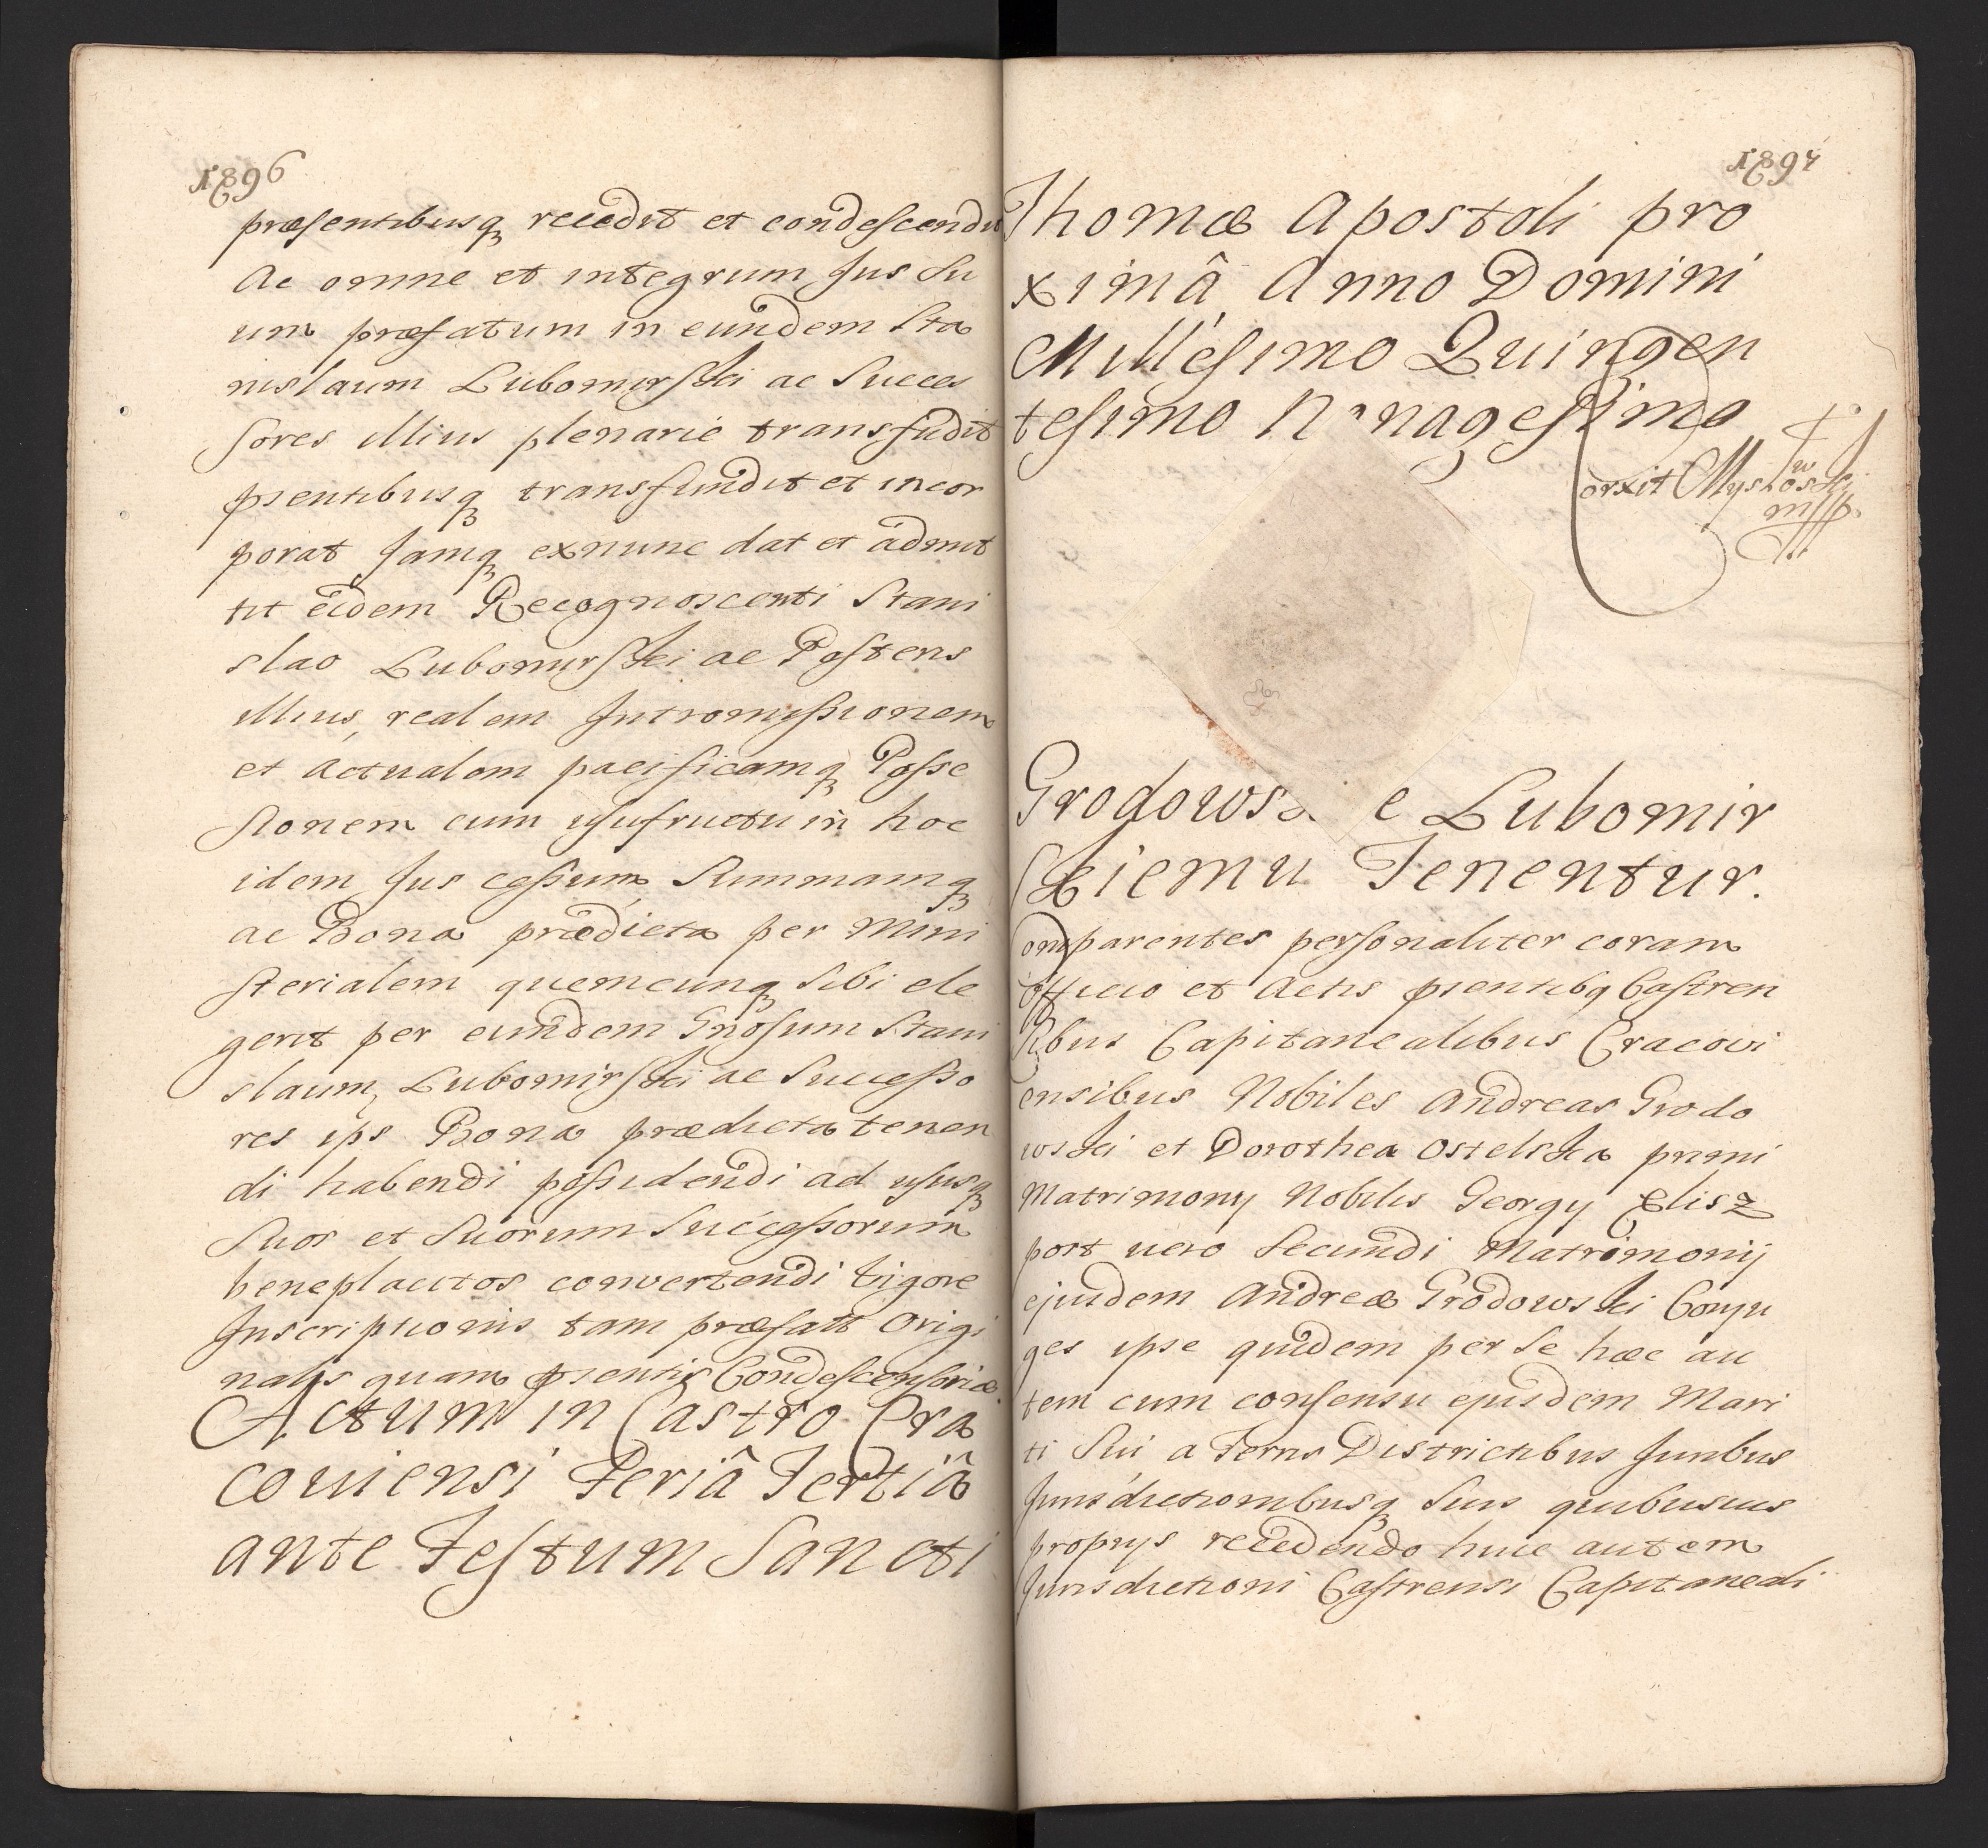 1896
præsentibusq recedit et condescendit
Ac omne et integrum Jus Su
um præfatum in eundem Sta
nislaum Lubomirski ac Succes
sores illius plenarie transfudit
pientibusq transfundit et incor
porat Jamq exnunc dat et admit
tit eidem Recognoscenti Stani
slao Lubomirski ac Posteris
illius, realem Intromissionem
et Actualem pacificamq Posse
ssionem cum usufructu in hoc
idem Jus cessum, Summamq
ac Bona prædicta per Mini
sterialem quemcunq Sibi ele
gerit per eundem Gnosum Stani
slaum, Lubomirski ac Successo
res ips Bona prædicta tenen
di habendi possidendi ad ususq
Suos et Suorum Successorum
beneplacitos convertendi Vigore
Inscriptionis tam præfatt Origi
nalis quam psentis Condescensoriæ
Actum in Castro Cra
coviensi Feriâ Tertiâ
ante Festum Sancti
1897
Thomæ Apostoli pro
ximâ Anno Domini
Millesimo Quingen
tesimo Nonagesimo
Corxit Myskowski
mpp
Grodowscie Lubomir
skiemu Tenentur.
Comparentes personaliter coram
Officio et Actis psentibq Castren
sibus Capitanealibus Cracovi
ensibus Nobiles Andreas Grodo
wski et Dorothea Ostelska primi
Matrimony Nobilis Georgy Elisz
post vero Secundi Matrimonij
ejusdem Andreæ Grodowski Conju
ges ipse quidem per Se hæc au
tem cum consensu ejusdem Mari
ti Sui a Terris Districtibus Juribus
Jurisdictionibusq Suis quibusvis
proprys recedendo huic autem
Jurisdictioni Castrensi Capitaneali